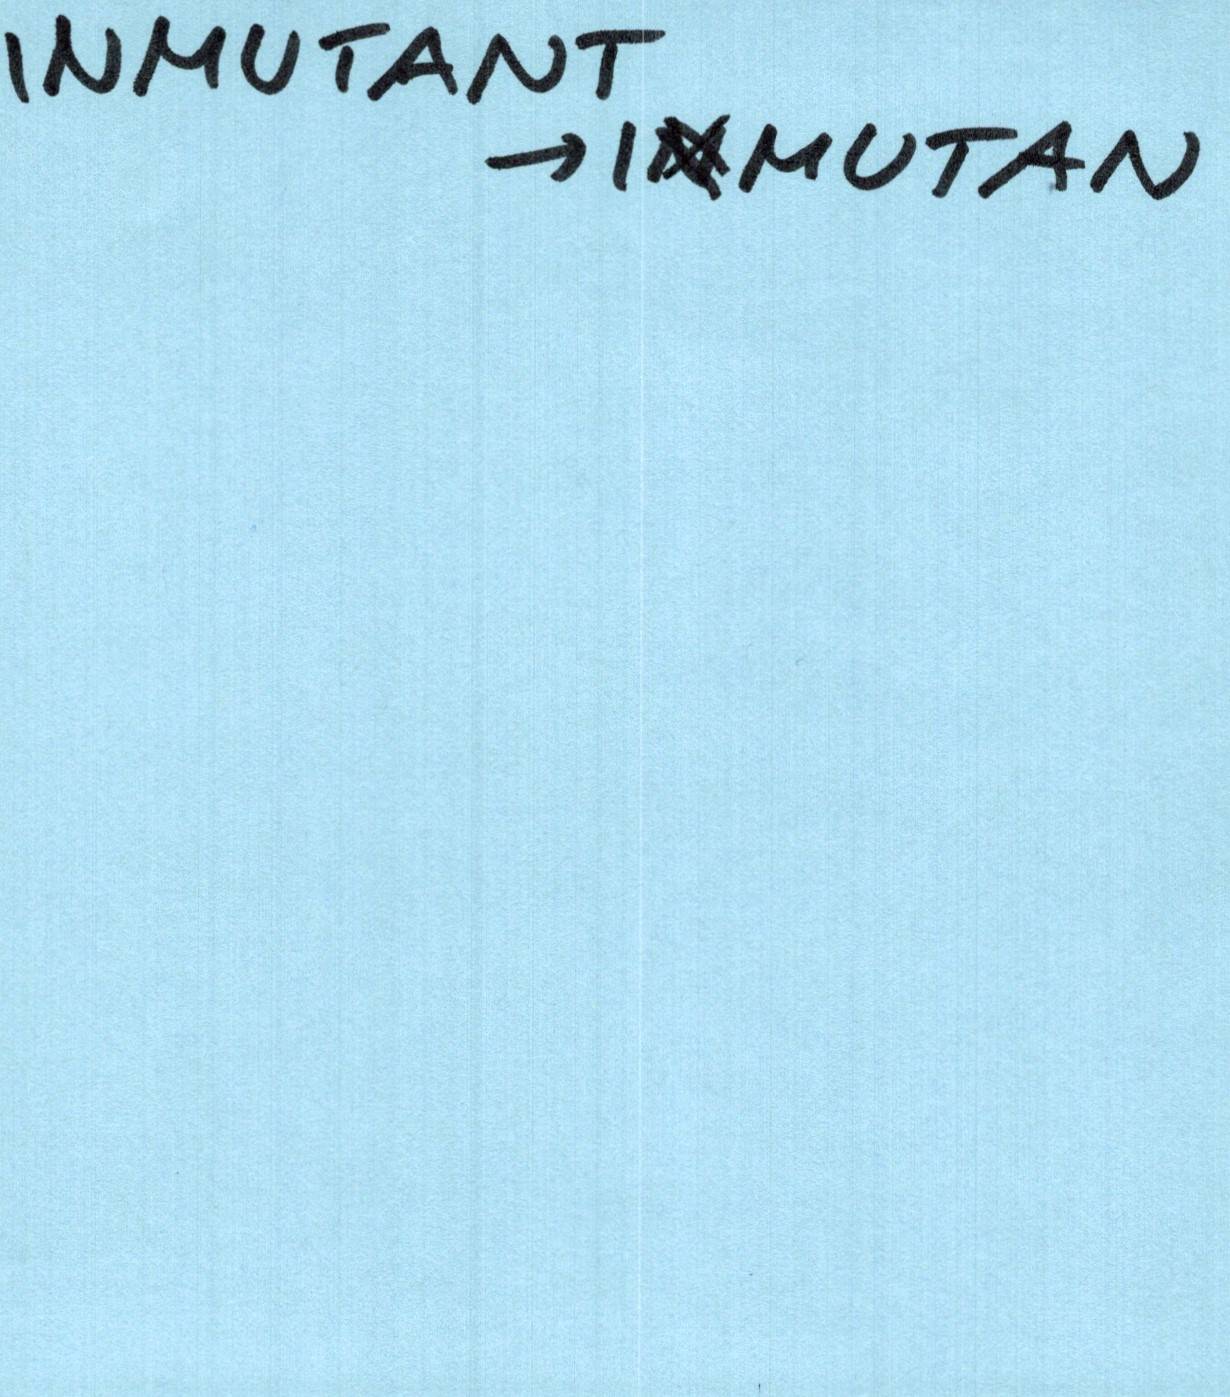 INMUTANT
→IMUTAN